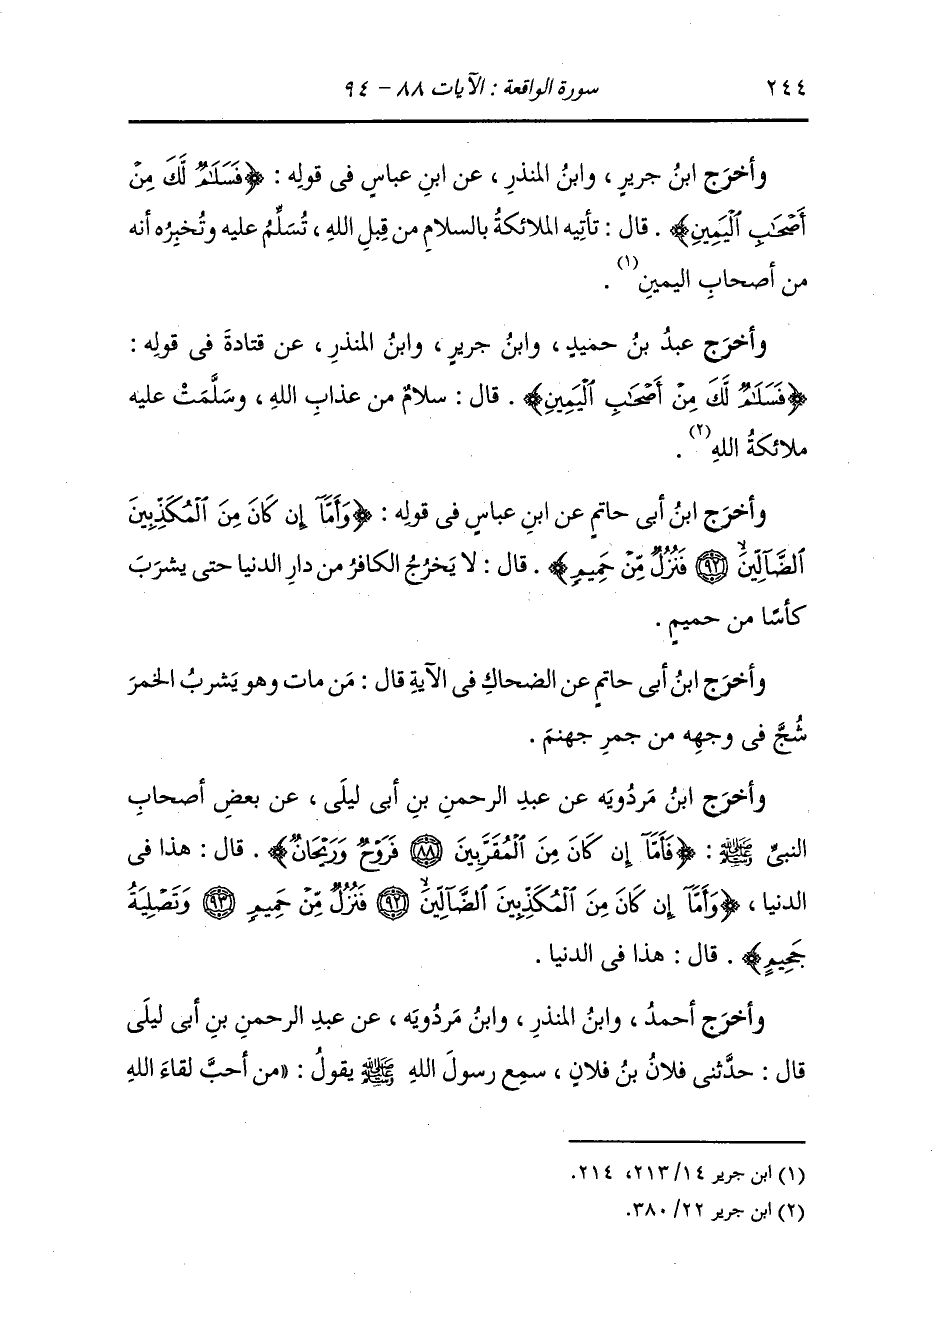 ٢٤٤ سورة الواقعة : الآيات ٨٨ - ٩٤
وأخرَج ابنُ جريرٍ ، وابنُ المنذرِ ، عن ابنِ عباسٍ فى قولِه : ﴿فَسَلَٰمٌ لَّكَ مِنْ
أَصْحَٰبِ ٱلْيَمِينِ﴾ . قال : تأتِيه الملائكةُ بالسلامِ من قِبلِ اللهِ ، تُسَلِّمُ عليه وتُخبِرُه أنه
من أصحابِ اليمينِ(١) .
وأخرَج عبدُ بنُ حميدٍ ، وابنُ جريرٍ ، وابنُ المنذرِ ، عن قتادةَ فى قولِه :
﴿فَسَلَٰمٌ لَّكَ مِنْ أَصْحَٰبِ ٱلْيَمِينِ﴾ . قال : سلامٌ من عذابِ اللهِ ، وسَلَّمَتْ عليه
ملائكةُ اللهِ(٢) .
وأخرَج ابنُ أبى حاتمٍ عن ابنِ عباسٍ فى قولِه : ﴿وَأَمَّآ إِن كَانَ مِنَ ٱلْمُكَذِّبِينَ
ٱلضَّآلِّينَۙ ﴿٩٢﴾ فَنُزُلٌ مِّنْ حَمِيمٍ﴾ . قال : لا يَخرُجُ الكافرُ من دارِ الدنيا حتى يشربَ
كأسًا من حميمٍ .
وأخرَج ابنُ أبى حاتمٍ عن الضحاكِ فى الآيةِ قال : مَن مات وهو يَشربُ الخمرَ
شُجَّ فى وجهِه من جمرِ جهنمَ .
وأخرَج ابنُ مَردُويَه عن عبدِ الرحمنِ بنِ أبى ليلَى ، عن بعضِ أصحابِ
النبىِّ ﷺ : ﴿فَأَمَّآ إِن كَانَ مِنَ ٱلْمُقَرَّبِينَ ﴿٨٨﴾ فَرَوْحٌ وَرَيْحَانٌ﴾ . قال : هذا فى
الدنيا ، ﴿وَأَمَّآ إِن كَانَ مِنَ ٱلْمُكَذِّبِينَ ٱلضَّآلِّينَۙ ﴿٩٢﴾ فَنُزُلٌ مِّنْ حَمِيمٍ ﴿٩٣﴾ وَتَصْلِيَةُ
جَحِيمٍ﴾ . قال : هذا فى الدنيا .
وأخرَج أحمدُ ، وابنُ المنذرِ ، وابنُ مَردُويَه ، عن عبدِ الرحمنِ بنِ أبى ليلَى
قال : حدَّثنى فلانُ بنُ فلانٍ ، سمِع رسولَ اللهِ ﷺ يقولُ : «من أحبَّ لقاءَ اللهِ
(١) ابن جرير ٢١٣/١٤، ٢١٤.
(٢) ابن جرير ٣٨٠/٢٢.